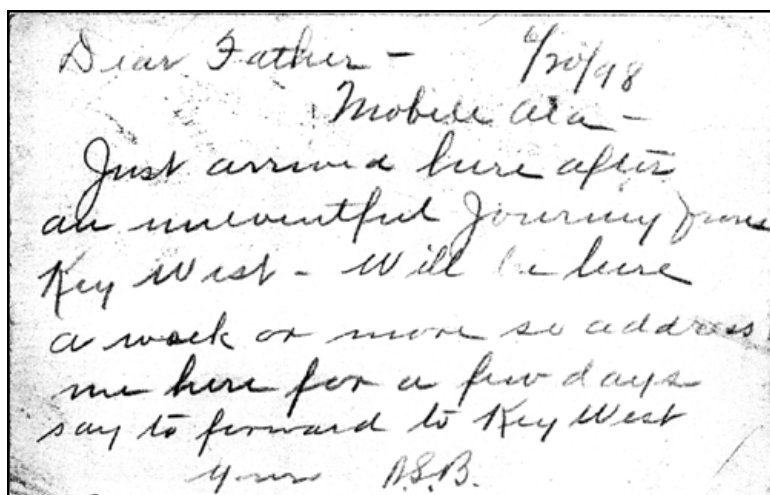 Dear Father - 6/20/98
Mobile Ala -
Just arrived here after
an uneventful Journey from
Key West - Will be here
a week or more so address
me here for a few days
say to forward to Key West
Yours